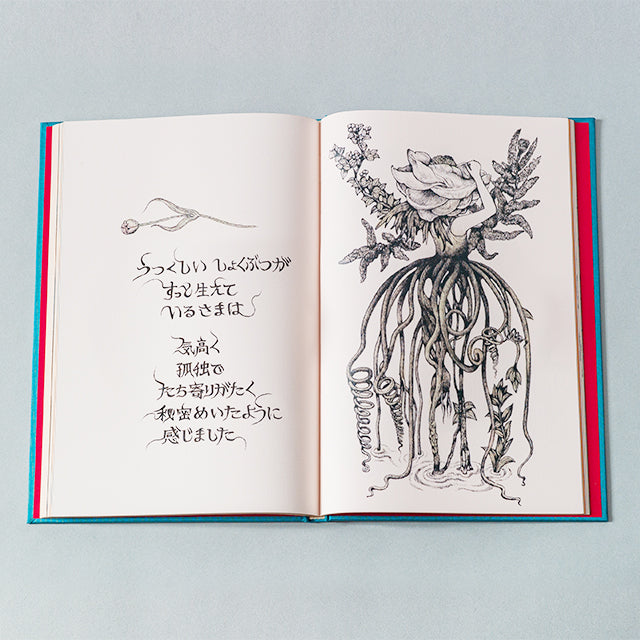 うつくしい しょくぶつが
すっと生えて
いるさまは
気高く
孤独で
たち寄りがたく
秘密めいたように
感じました